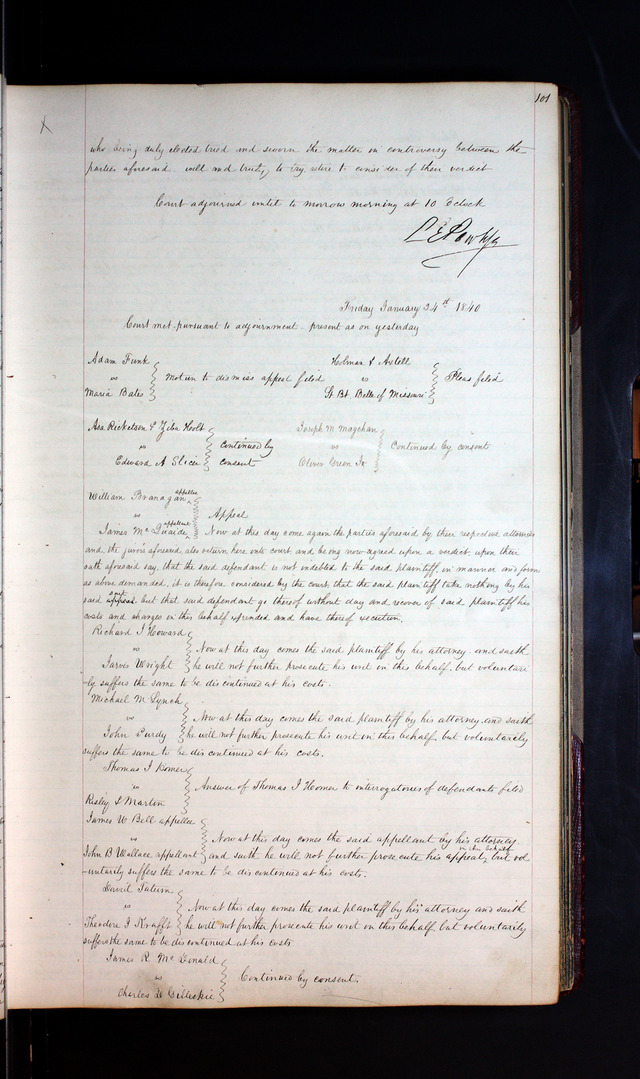 101
X
who being duly elected tried and sworn the matter in controversy between the
parties aforesaid well and truly to try, retire to consider of their verdict
Court adjourned untill to morrow morning at 10 Oclock
Friday January 24th 1840
Court met pursuant to adjournment present as on yesterday
Adam Funk
vs
Maria Bates
Motion to dismiss appeal filed
Holman & Axtell
vs
St. Bt. Belle of Missouri
Pleas filed
Asa Rickelson & Ziba Hoolt
vs
Edward A Slicer
Continued by
consent
Joseph M Maychan
vs
Oliver Green Jr
Continued by consent
William Branagan appellee
vs
James McQuaide appellant
Appeal
Now at this day come again the parties aforesaid by their respective attornies
and the jurors aforesaid also return here into court and being now agreed upon a verdict upon their
oath aforesaid say, that the said defendant is not indebted to the said plaintiff, in manner and form
as above demanded, it is therefore considered by the court that the said plaintiff take nothing by his
said suit but that said defendant go thereof without day and recover of said plaintiff his
costs and charges in this behalf expended and have thereof execution.
Richard J Howard
vs
Jarvis Wright
Now at this day comes the said plaintiff by his attorney and saith
he will not further prosecute his writ in this behalf, but voluntari
-ly suffers the same to be discontinued at his costs.
Michael M Lynch
vs
John Purdy
Now at this day comes the said plaintiff by his attorney and saith
he will not further prosecute his writ in this behalf, but voluntarily
suffers the same to be discontinued at his costs.
Thomas J Homer
vs
Risley & Martin
Answer of Thomas J Homer to interrogatories of defendants filed
James W Bell appellee
vs
John B Wallace appellant
Now at this day comes the said appellant by his attorney
and saith he will not further prosecute his appeal, in this behalf but vol
-untarily suffers the same to be discontinued at his costs.
David Tatum
vs
Theodore J Krafft
Now at this day comes the said plaintiff by his attorney and saith
he will not further prosecute his writ in this behalf but voluntarily
suffers the same to be discontinued at his costs
James R McDonald
vs
Charles D Gilleskie
Continued by consent.